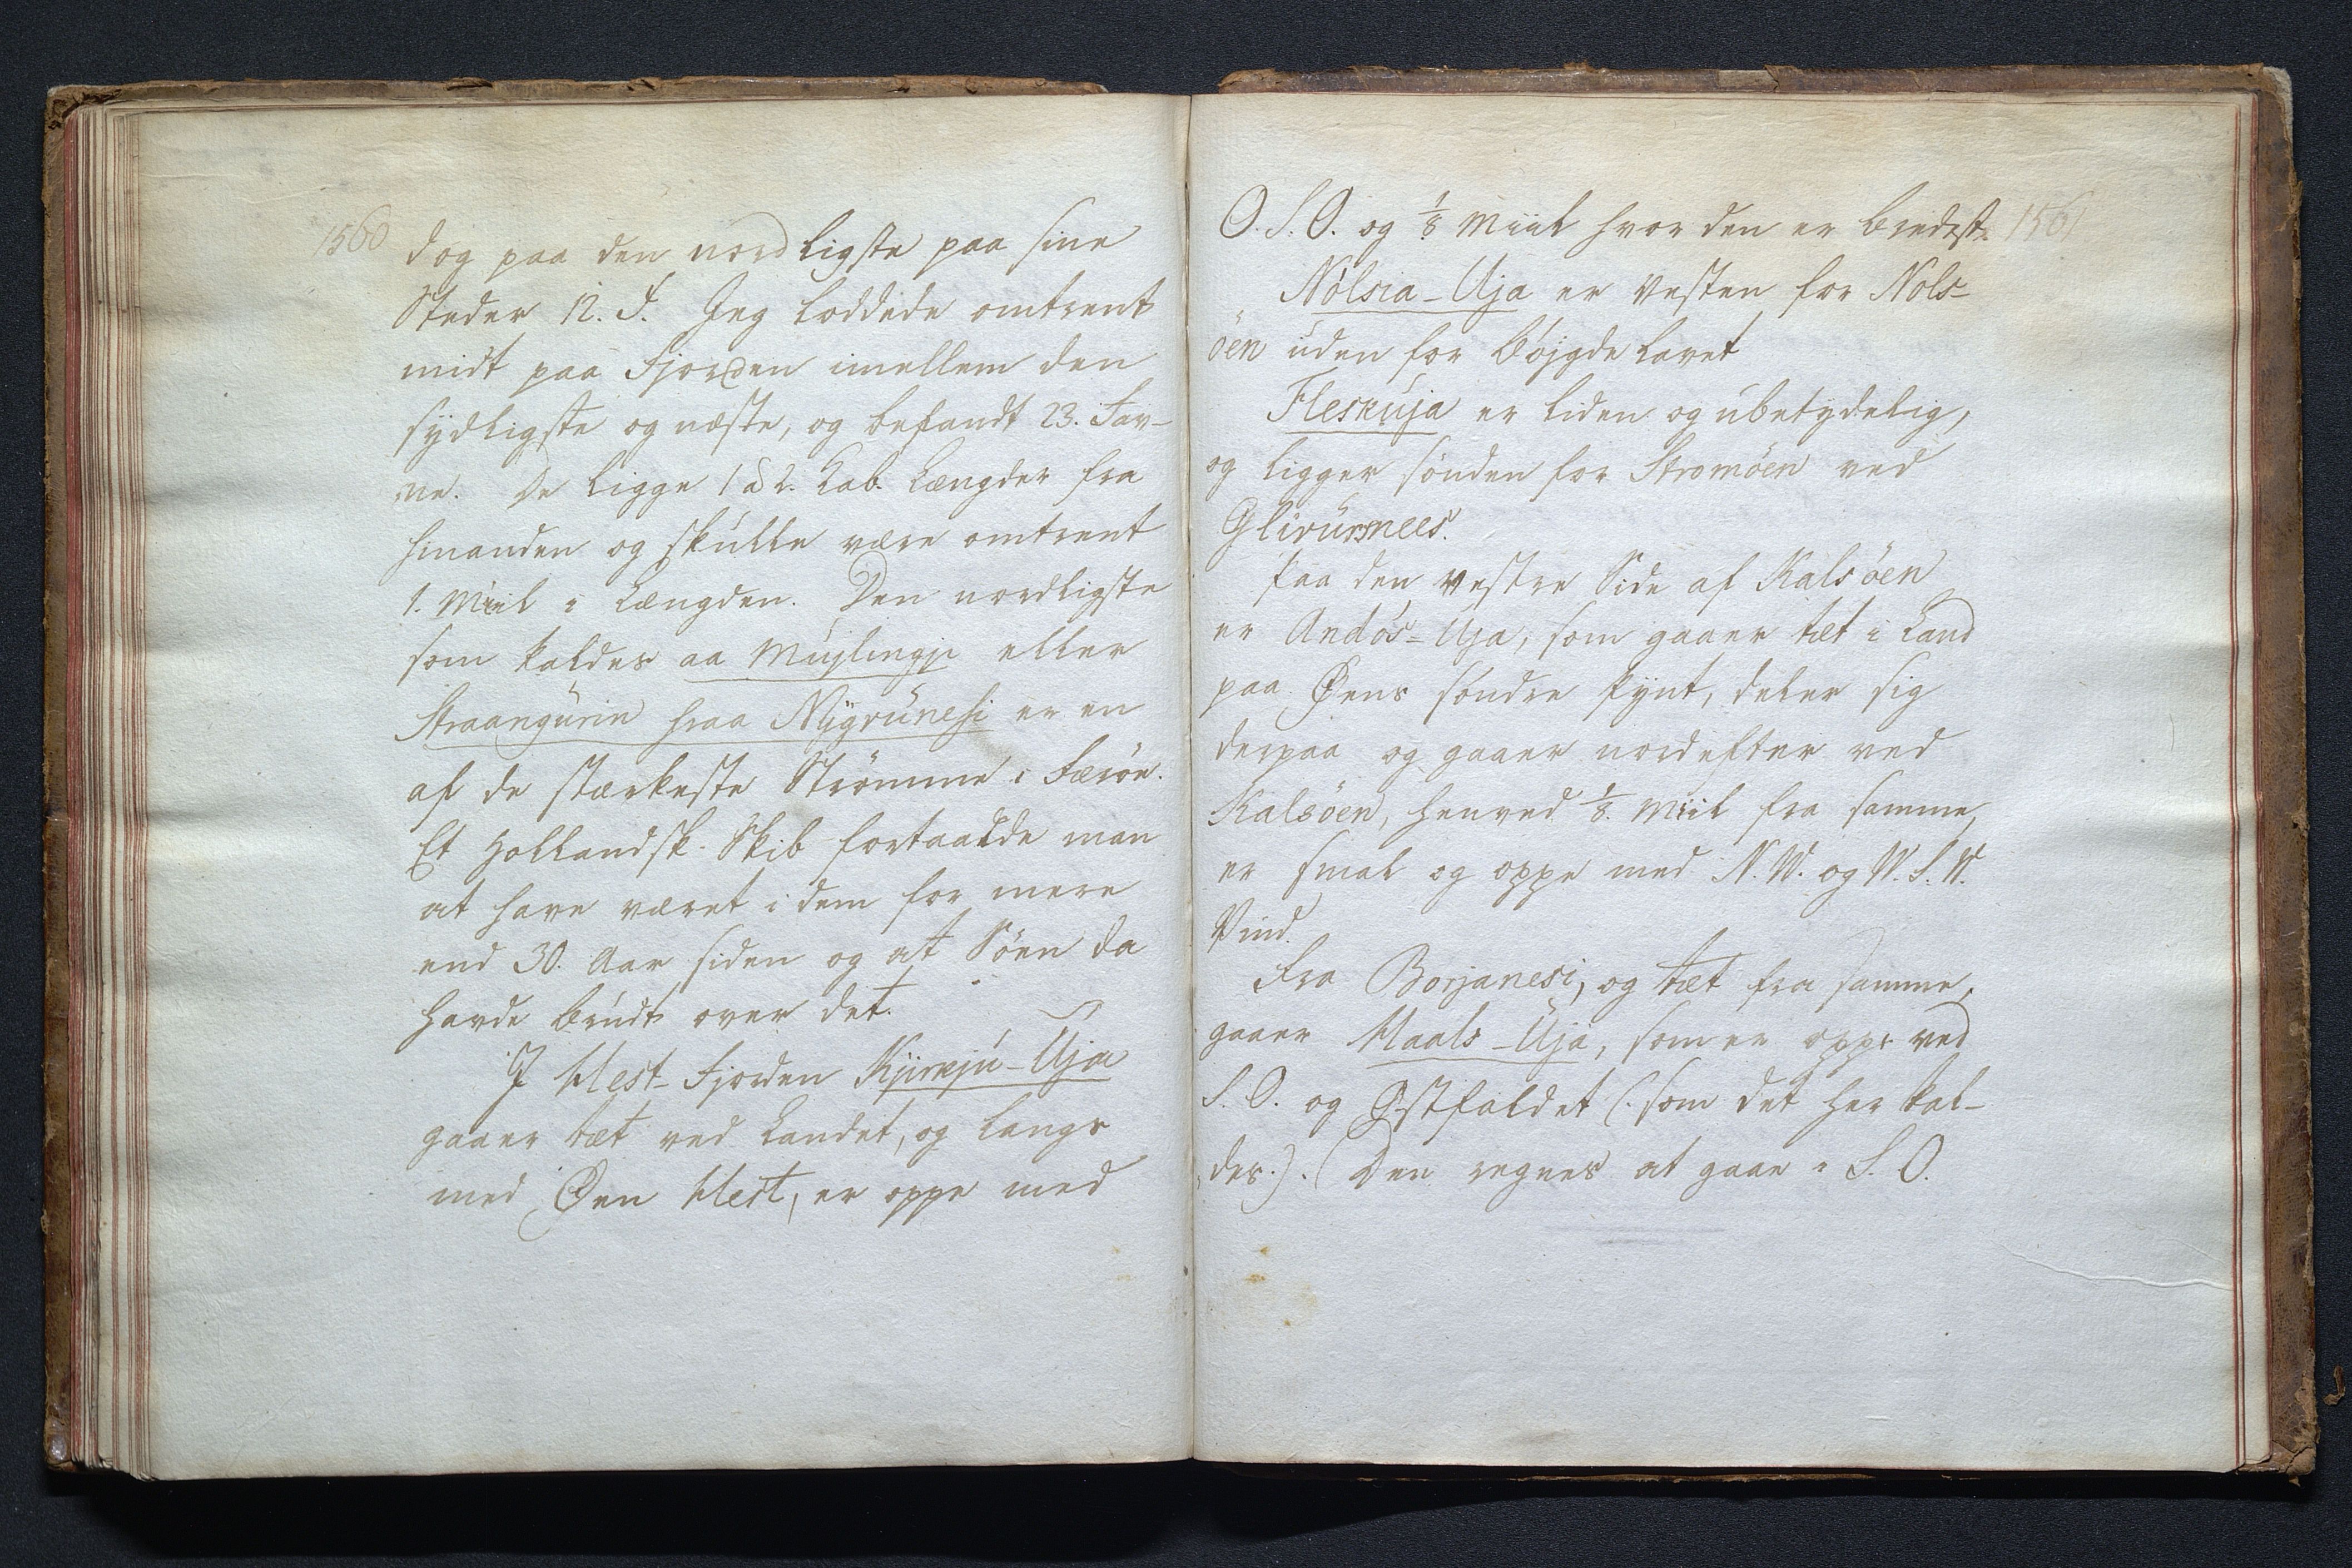 1560
dog paa den nordligste paa sine
Steder 12. F. Jeg loddede omtrent
midt paa Fjorden imellem den
sydligste og næste, og befandt 23. Fav-
ne. De ligge 1 à 2. Kab. Længder fra
hinanden og skulle være omtrent
1. Miil i Længden. Den nordligste
som kaldes aa Mujlingji eller
Straangurin fraa Nygrúnesi er en
af de stærkeste Strömme i Færöe.
Et Hollandsk Skib fortaalde man
at have været i dem for mere
end 30. Aar siden og at Söen da
havde brudt over det.
I Hest-Fjorden Kjirkju-Uja
gaaer tæt ved Landet, og langs
med Øen Hest, er oppe med
1561
O.S.O. og 1/8 Miil hvor den er bredest.
Nólsia-Uja er vesten for Nols-
öen uden for Böjgdelavet
Fleskuja er liden og ubetydelig,
og ligger sönden for Stromöen ved
Glivursnees.
Paa den vestre Side af Kalsöen
er Andós-Uja, som gaaer tæt i Land
paa Øens söndre Pynt, deler sig
derpaa og gaaer nordefter ved
Kalsöen, henved 1/8. Miil fra samme,
er smal og oppe med N.W. og W.S.W.
Vind.
Fra Borjanesi, og tæt fra samme,
gaaer Haals-Uja, som er oppe ved
S.O. og Østfaldet (: som det her kal-
des.:). Den regnes at gaae i S.O.